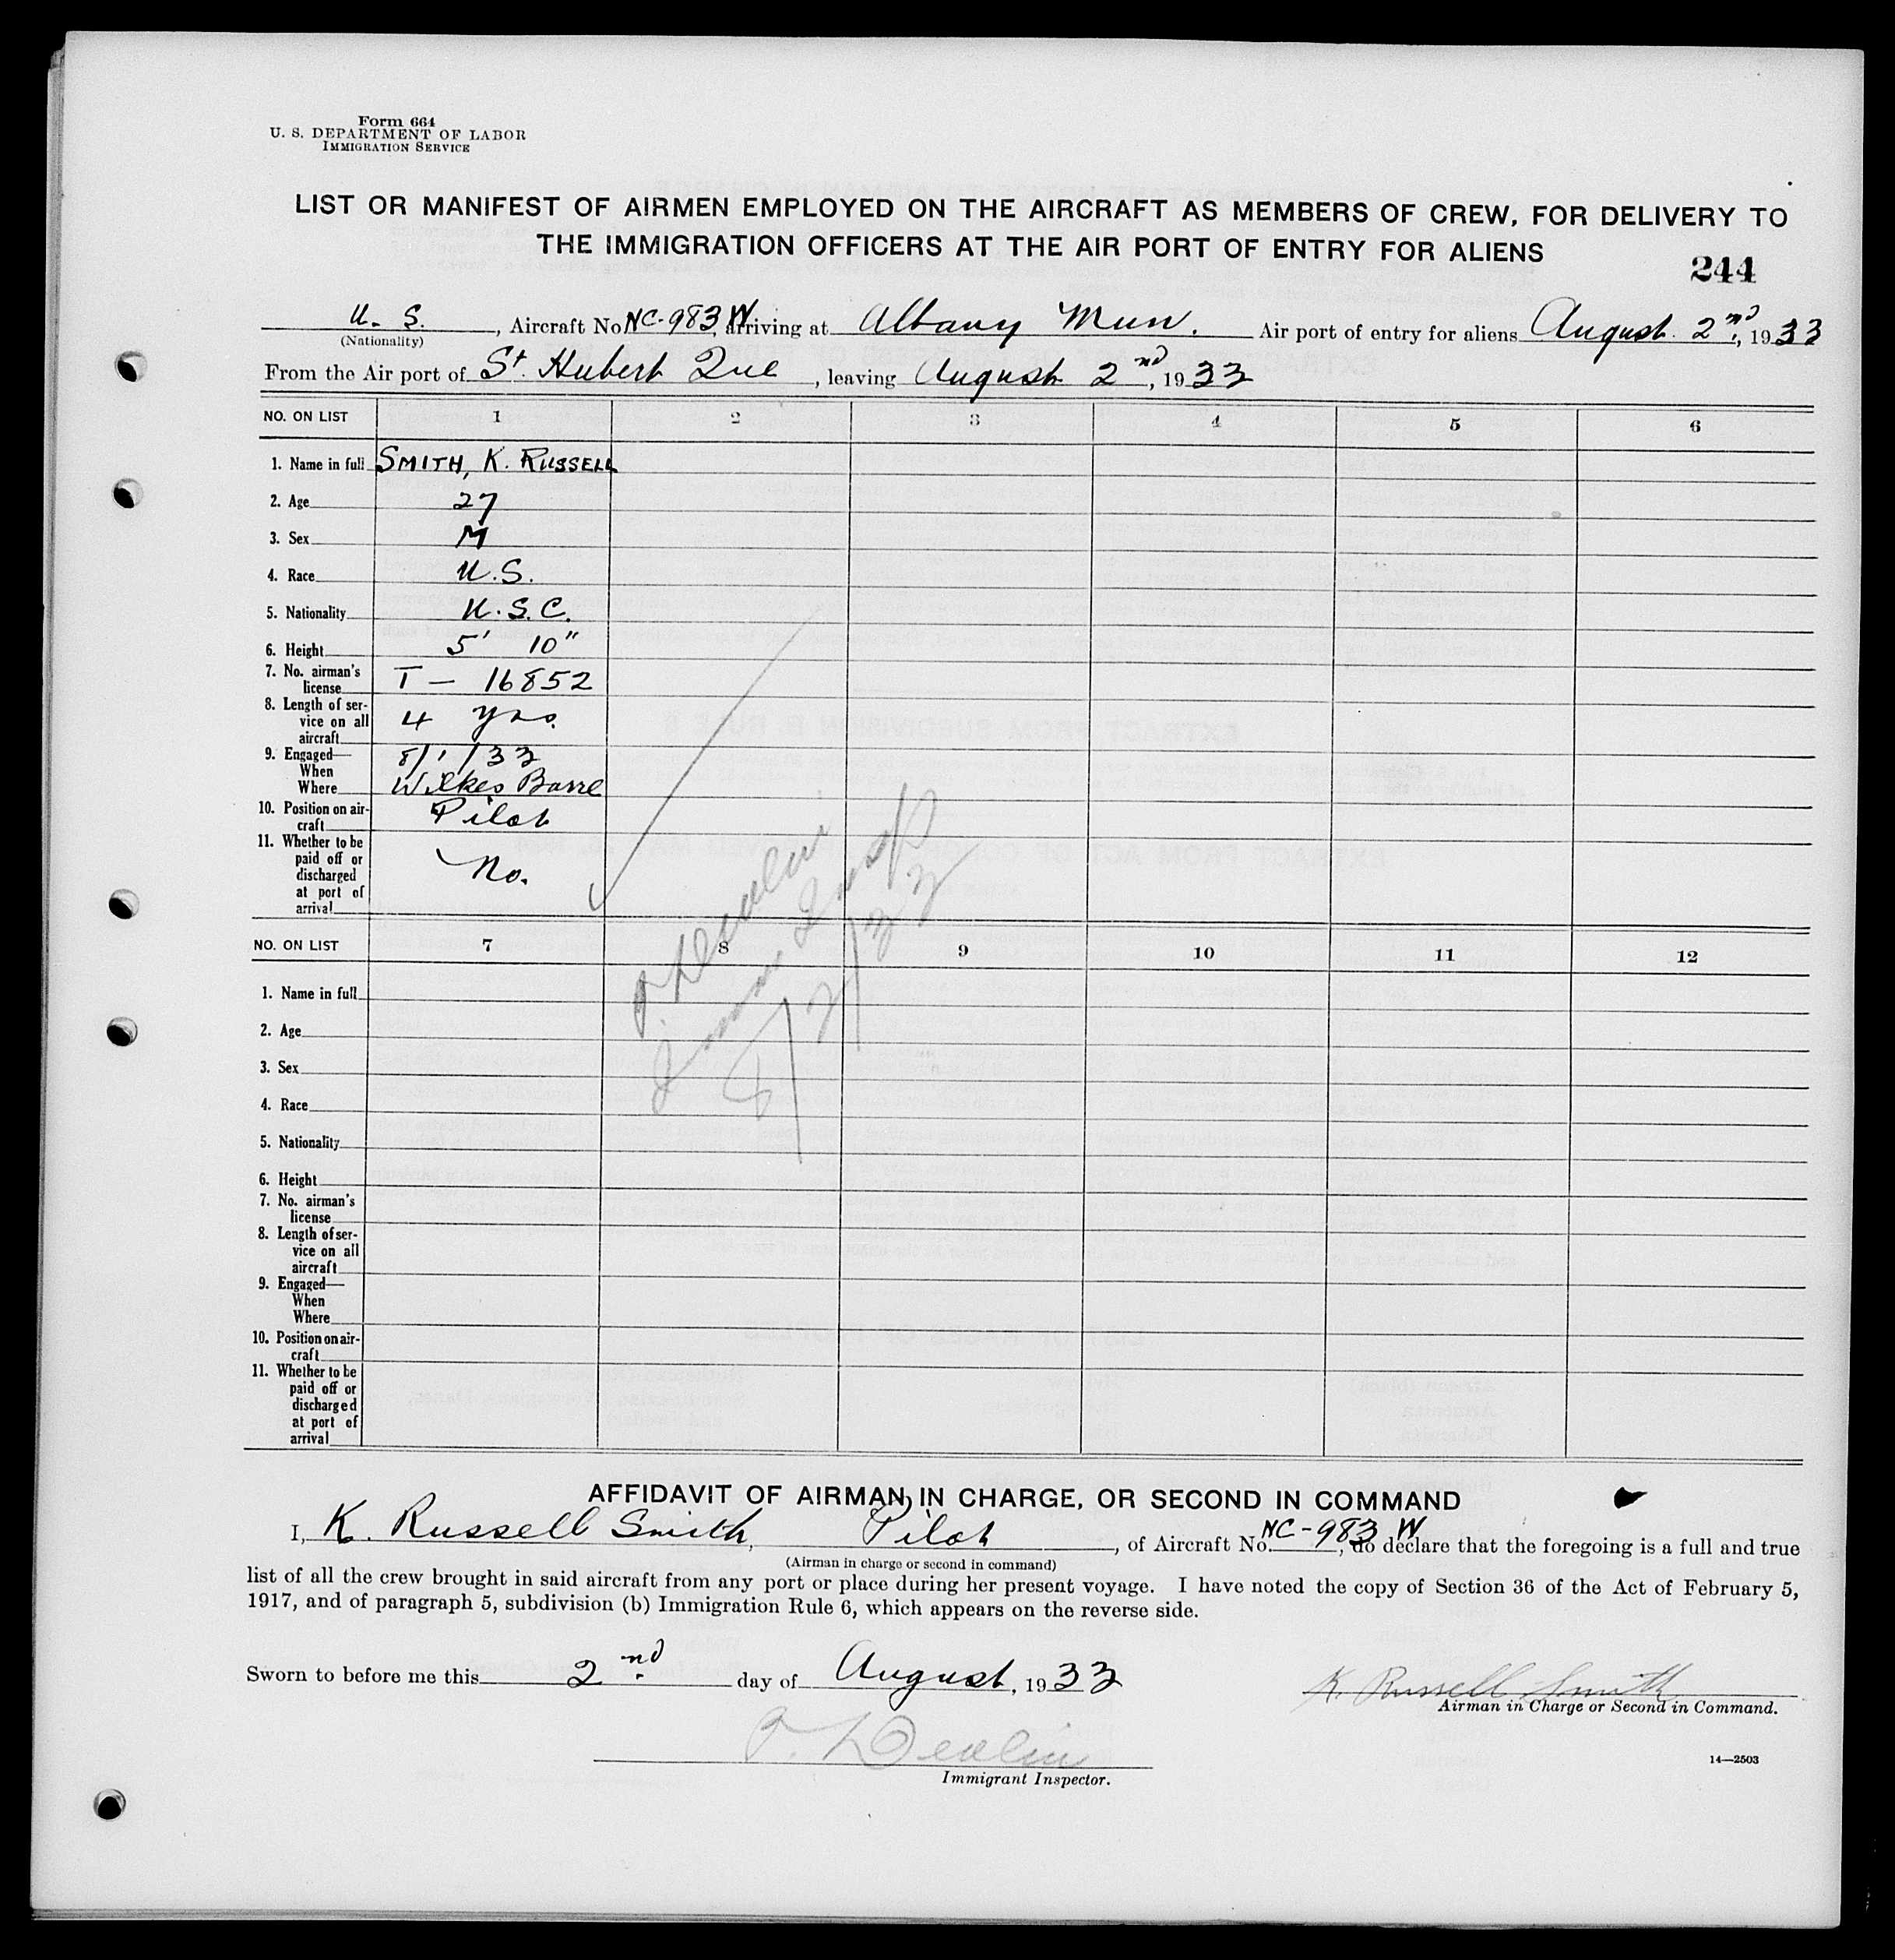 Form 664
U. S. DEPARTMENT OF LABOR
IMMIGRATION SERVICE
LIST OR MANIFEST OF AIRMEN EMPLOYED ON THE AIRCRAFT AS MEMBERS OF CREW, FOR DELIVERY TO
THE IMMIGRATION OFFICERS AT THE AIR PORT OF ENTRY FOR ALIENS
244
U. S., Aircraft No. NC-983W arriving at Albany Mun. Air port of entry for aliens August 2nd, 1933
(Nationality)
From the Air port of St. Hubert Que, leaving August 2nd, 1933
NO. ON LIST 1 2 3 4 5 6
1. Name in full SMITH, K. RUSSELL
2. Age 27
3. Sex M
4. Race U.S.
5. Nationality U.S.C.
6. Height 5' 10"
7. No. airman's
license T - 16852
8. Length of ser-
vice on all
aircraft 4 yrs.
9. Engaged—
When 8/1/33
Where Wilkes Barre
10. Position on air-
craft Pilot
11. Whether to be
paid off or
discharged
at port of
arrival No.
T. Devlin
Immn Insp
8/2/33
NO. ON LIST 7 8 9 10 11 12
1. Name in full
2. Age
3. Sex
4. Race
5. Nationality
6. Height
7. No. airman's
license
8. Length of ser-
vice on all
aircraft
9. Engaged—
When
Where
10. Position on air-
craft
11. Whether to be
paid off or
discharged
at port of
arrival
AFFIDAVIT OF AIRMAN IN CHARGE, OR SECOND IN COMMAND
I, K. Russell Smith, Pilot, of Aircraft No. NC-983W, do declare that the foregoing is a full and true
(Airman in charge or second in command)
list of all the crew brought in said aircraft from any port or place during her present voyage. I have noted the copy of Section 36 of the Act of February 5,
1917, and of paragraph 5, subdivision (b) Immigration Rule 6, which appears on the reverse side.
Sworn to before me this 2nd day of August, 1933
K. Russell Smith
Airman in Charge or Second in Command.
T. Devlin
Immigrant Inspector.
14—2503